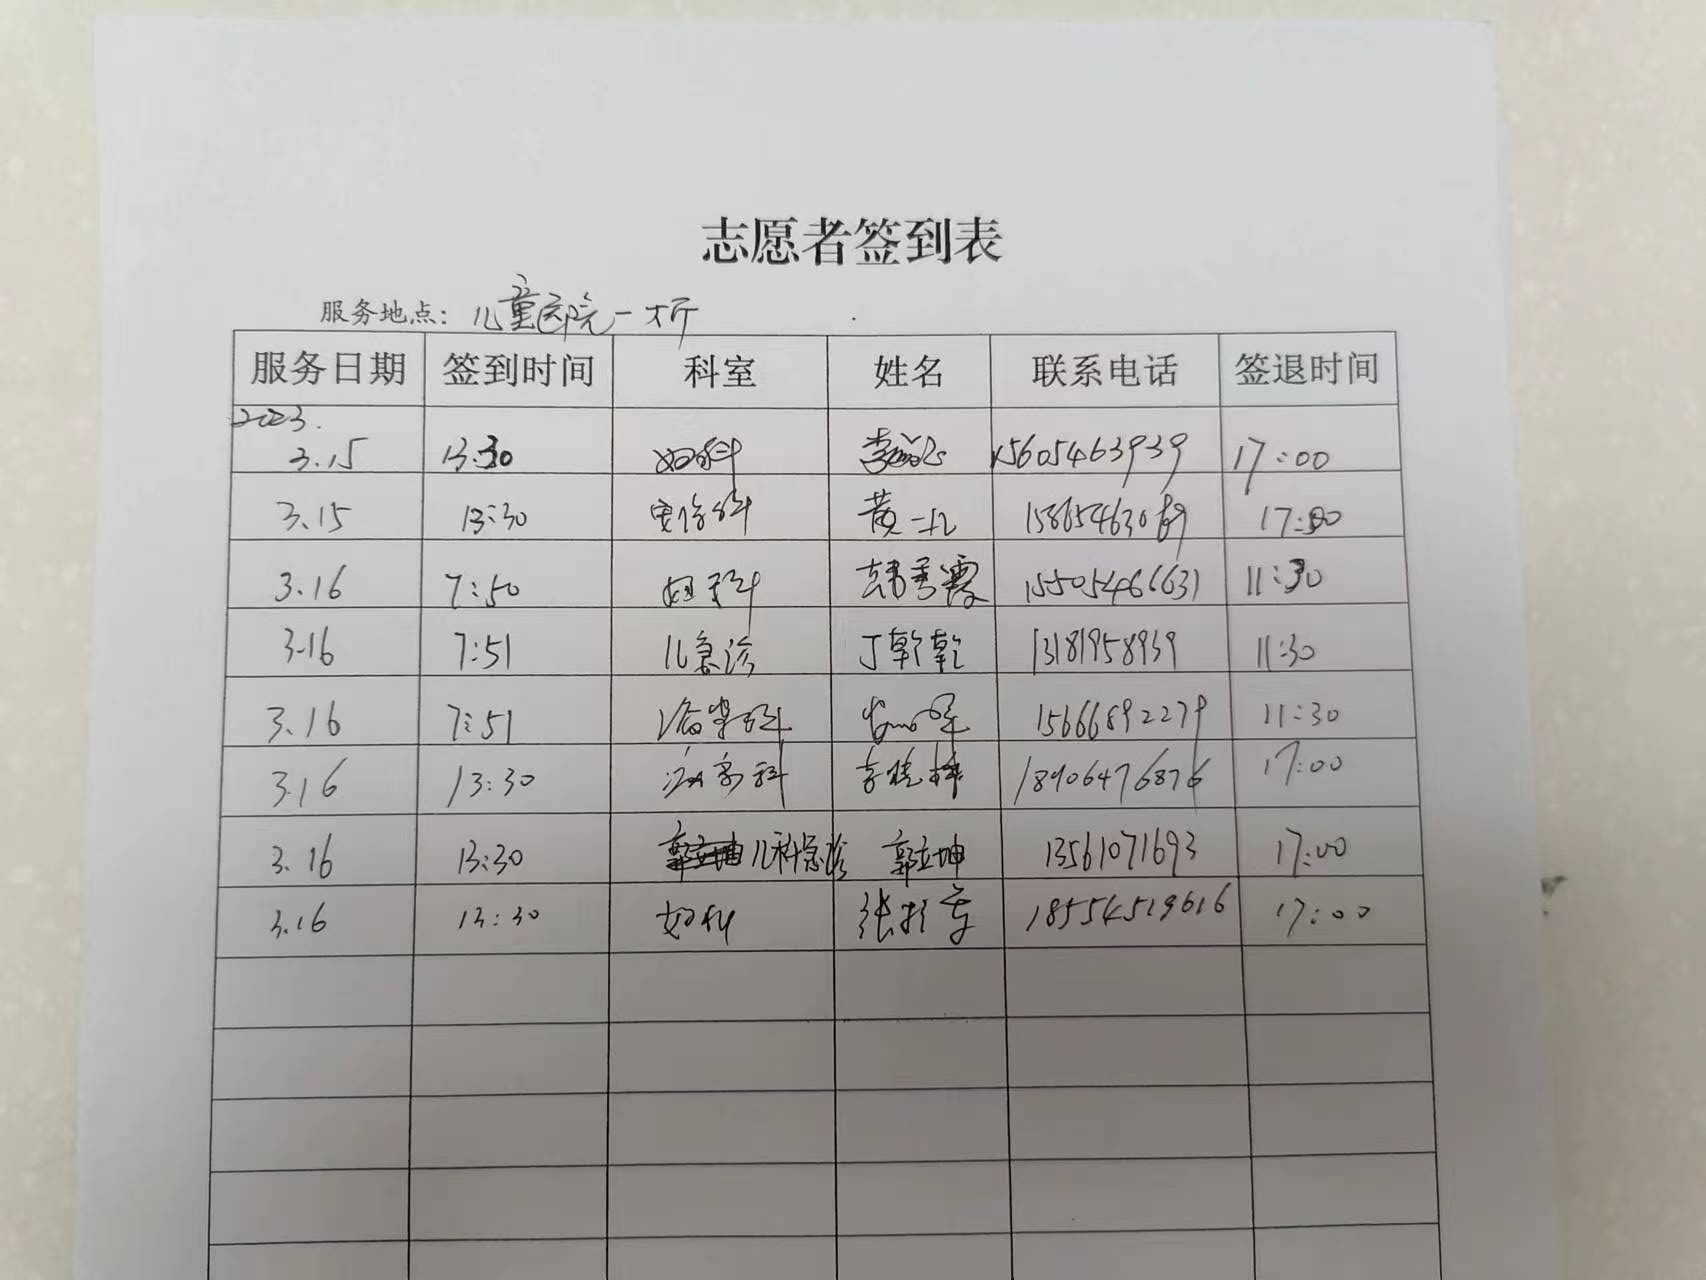 志愿者签到表
服务地点: 儿童医院一大厅
服务日期 签到时间 科室 姓名 联系电话 签退时间
2023.
3.15 13:30 妇科 李 15605463939 17:00
3.15 13:30 科 黄 15865463089 17:00
3.16 7:50 妇科 韩秀霞 15505466631 11:30
3.16 7:51 儿急诊 丁乾乾 13181958939 11:30
3.16 7:51 科 15666892279 11:30
3.16 13:30 科 李晓 18906476876 17:00
3.16 13:30 儿科急诊 郭立坤 13561071693 17:00
3.16 13:30 妇科 张 18554519616 17:00